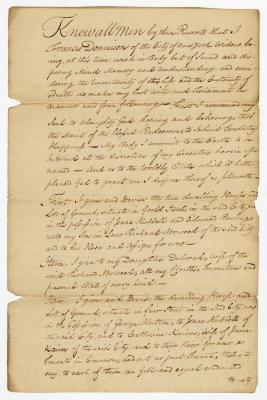 Know all Men by these Presents that I
Frances Dennison of the City of New York Widow, be-
ing, at this time, weak in Body but of Sound and dis-
posing Mind, Memory and Understanding, and consi-
dering the Uncertainty of this Life and the Certainty of
Death do make my last Will and Testament in
manner and form following — First I commend my
Soul to Almighty God, hoping and believing thro'
the Merits of the Blessed Redeemer to inherit Everlasting
Happiness — My Body I commit to the Earth to be
Interred at the discretion of my Executors herein after
named — And as to the Worldly Estate which it hath
pleased God to grant me I dispose thereof as follows —
First. I give and Devise the two dwelling Houses and
Lots of Ground, situate in Gold Street, in the said City
in the possession of Isaac and Edward
unto my Son in Law Richard Norwood of the said City
and to his Heirs and Assigns for ever —
Item. I give to my Daughter Deborah, Wife of the
said Richard Norwood, all my Furniture and
personal Estate of every kind —
Item. I give and Devise the dwelling House and
Lot of Ground, situate in Street in the said City now
in the possession of George to Isaac
of the said City, and to Catherine Wife of Isaac
of the said City, and to their Heirs for ever as
Tenants in Common, and not as Joint Tenants, that is to
say, to each of them an equal undivided
Moiety